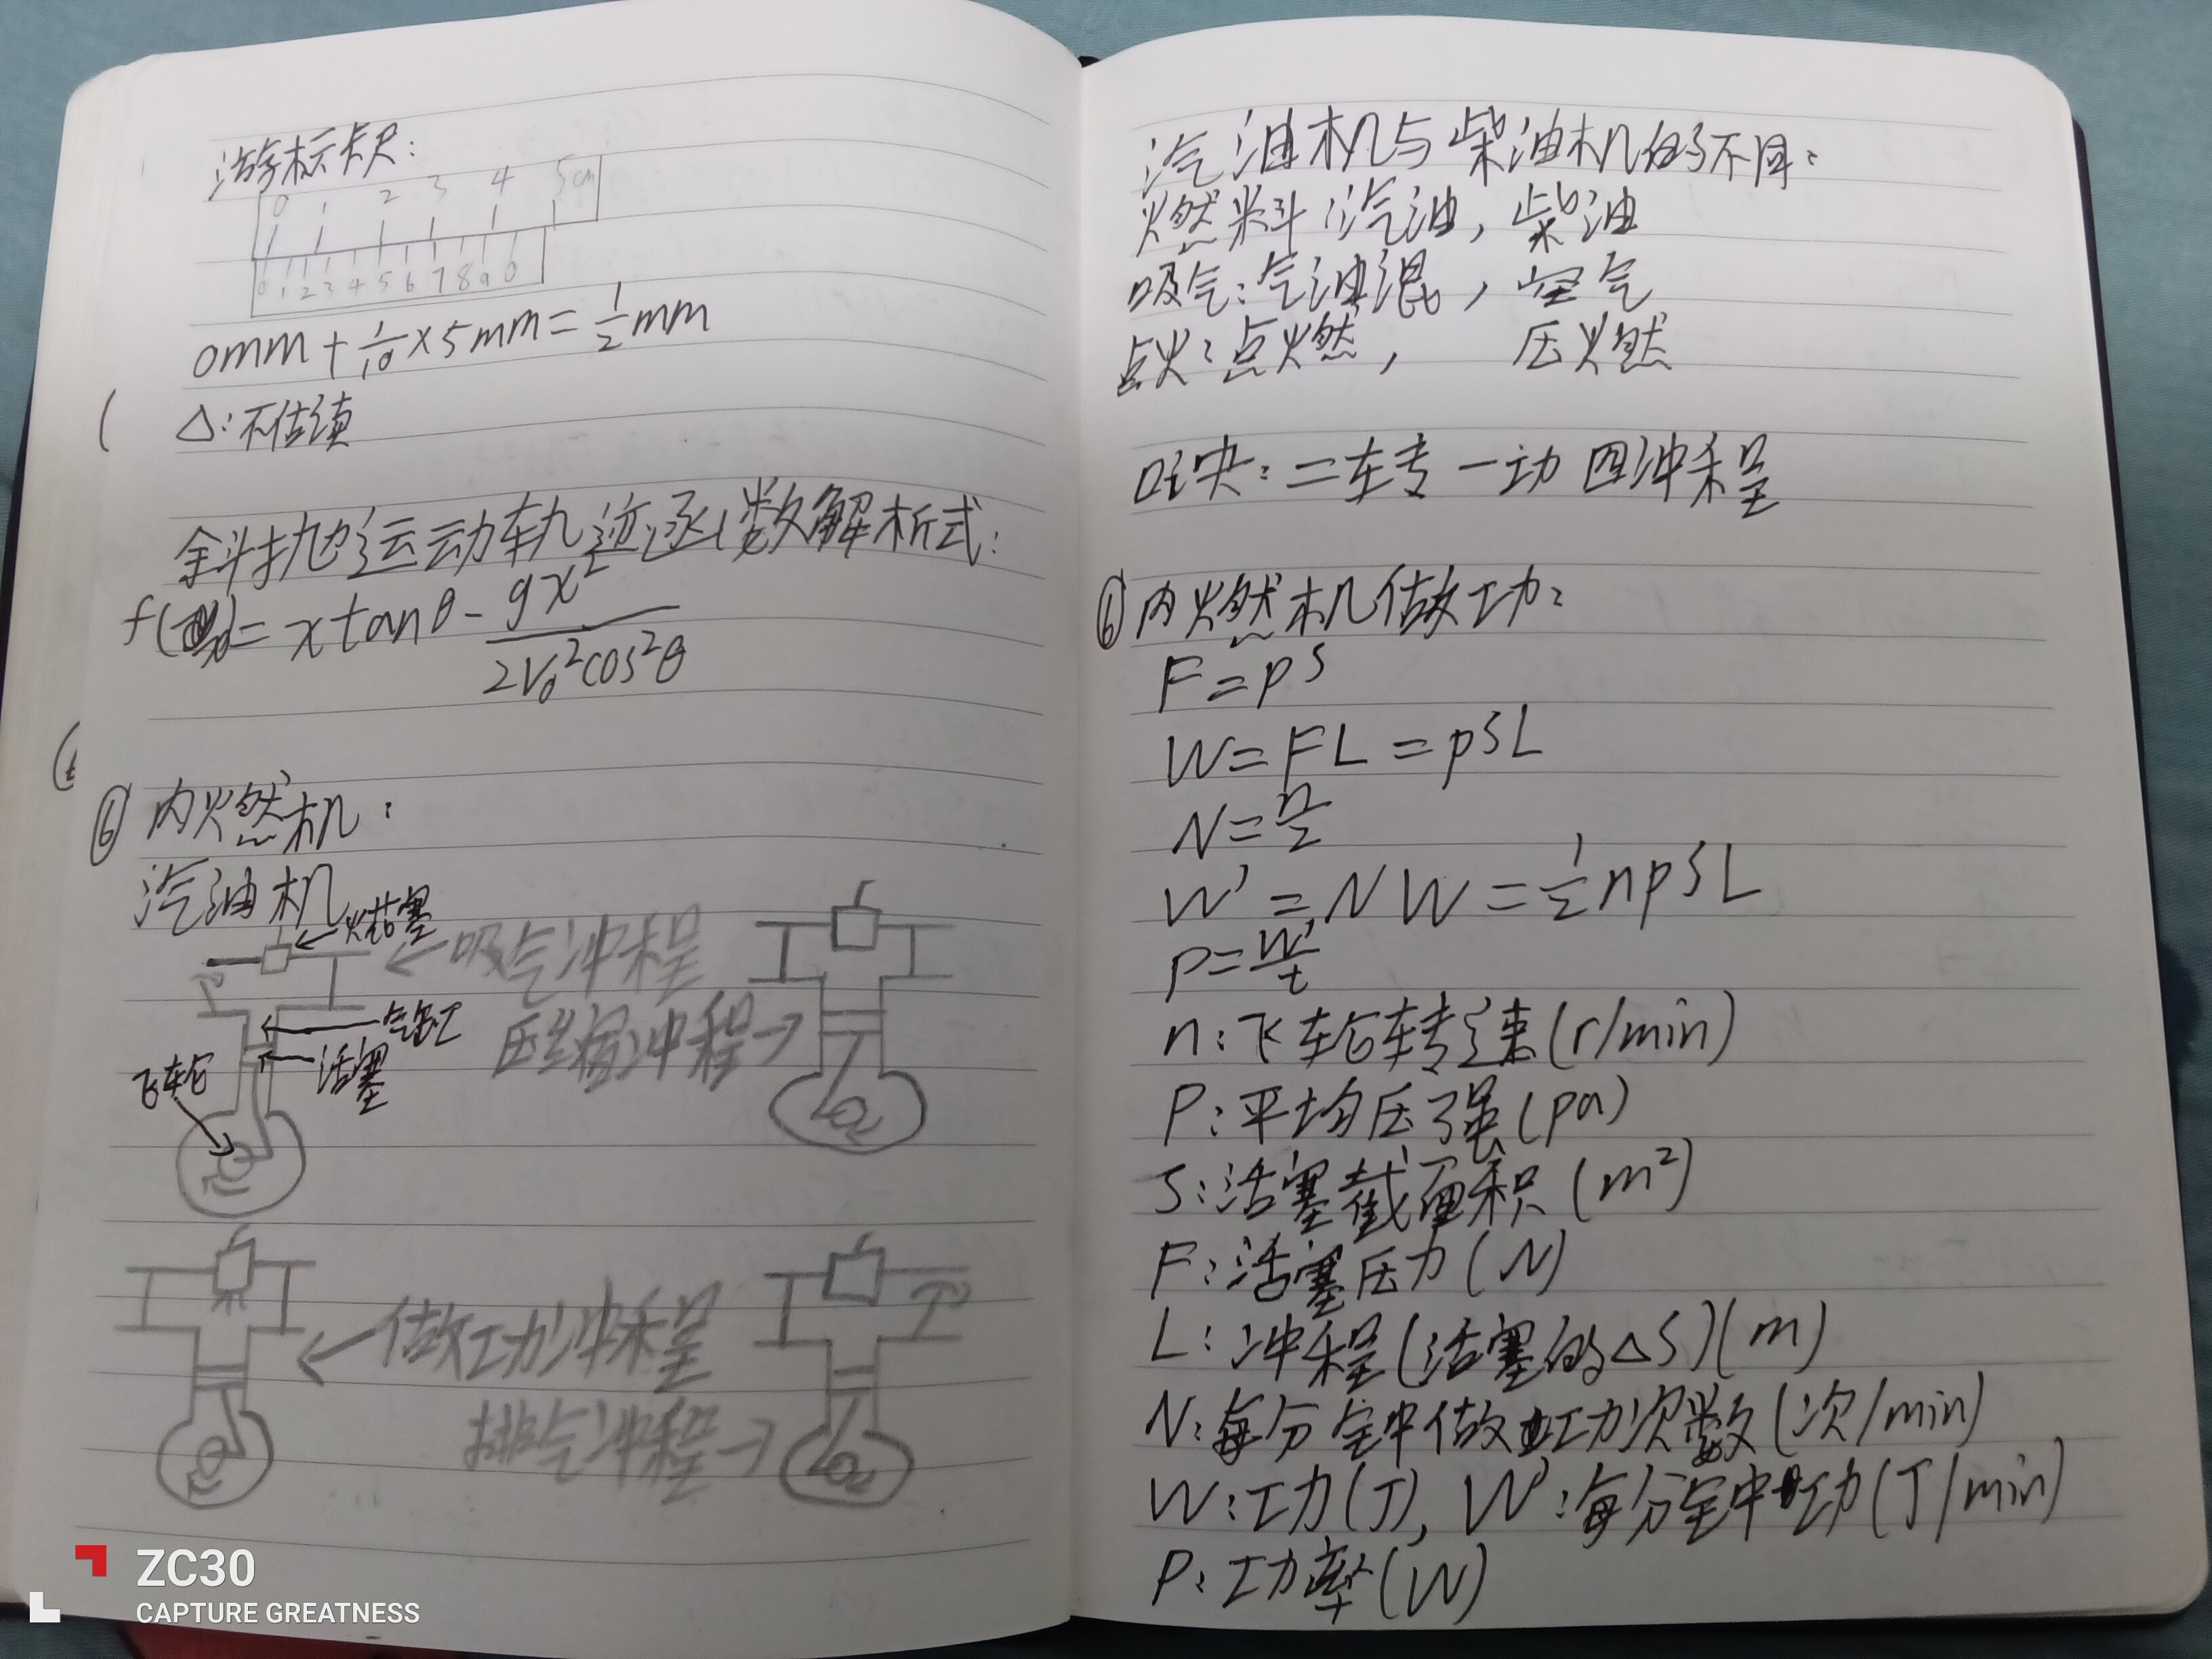 游标卡尺:
0 1 2 3 4 5cm
0 1 2 3 4 5 6 7 8 9 0
0mm + 1/10 × 5mm = 1/2 mm
△: 不估读
斜抛运动轨迹函数解析式:
f(x) = x tanθ - gx²/2V₀²cos²θ
⑥ 内燃机:
汽油机
火花塞
← 吸气冲程
气缸
活塞
飞轮
压缩冲程 →
← 做功冲程
排气冲程 →
汽油机与柴油机的不同:
燃料:汽油, 柴油
吸气:气油混, 空气
点火:点燃, 压燃
口诀:二转一动四冲程
⑥ 内燃机做功:
F = pS
W = FL = pSL
N = n/2
W' = NW = 1/2 npSL
P = W'/t
n: 飞轮转速 (r/min)
P: 平均压强 (pa)
S: 活塞截面积 (m²)
F: 活塞压力 (N)
L: 冲程 (活塞的△S) (m)
N: 每分钟做功次数 (次/min)
W: 功 (J), W': 每分钟功 (J/min)
P: 功率 (W)
ZC30
CAPTURE GREATNESS